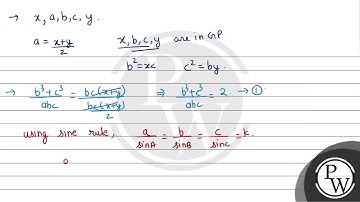 → x, a, b, c, y.
a = x+y/2
x, b, c, y are in GP
b² = xc c² = by.
→ b³+c³/abc = bc(x+y)/bc(x+y)/2 ⇒ b³+c³/abc = 2. → ①
using sine rule, a/sinA = b/sinB = c/sinC = k.
P
W